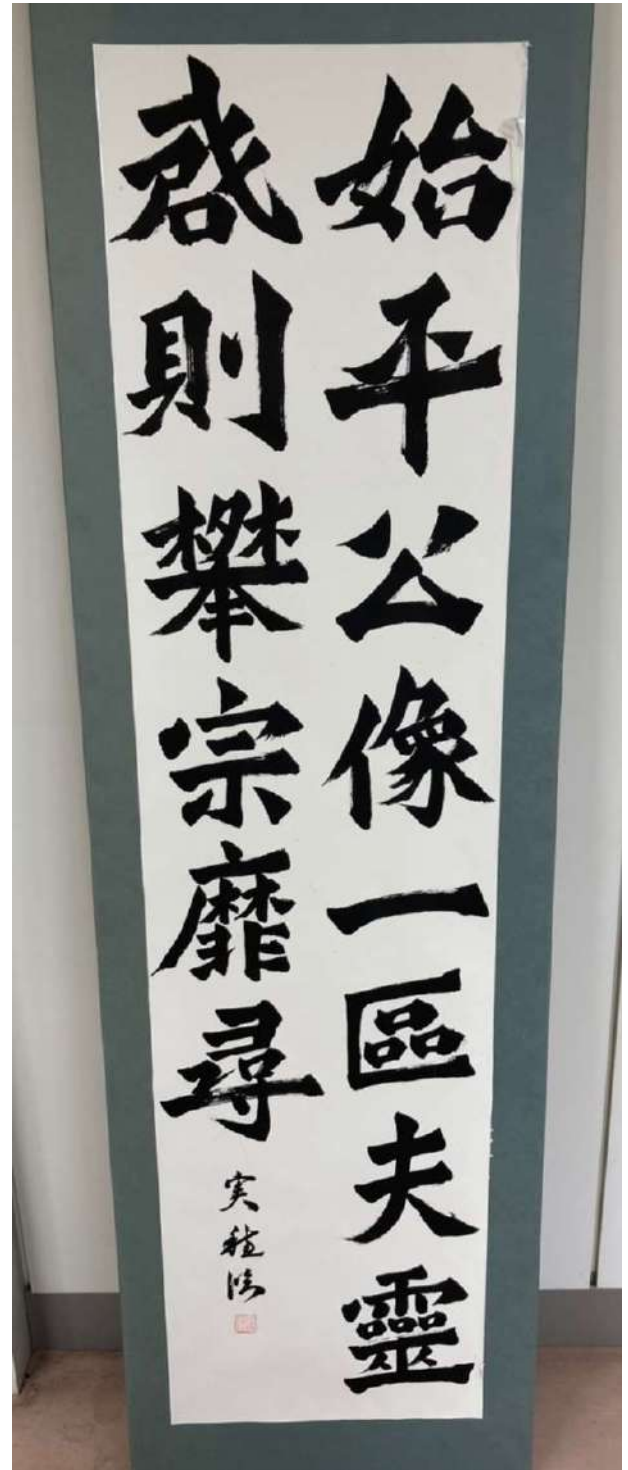 始平公像一區夫靈
啓則攀宗靡尋
実臨